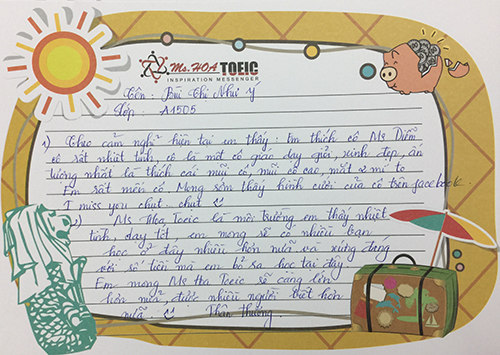 Ms.HOA TOEIC
INSPIRATION MESSENGER
Tên : Bùi Thị Như Ý
Lớp : A1505
1) Theo cảm nghĩ hiện tại em thấy : Em thích cô Ms Diễm
cô rất nhiệt tình, cô là một cô giáo dạy giỏi, xinh đẹp, ấn
tượng nhất là thích cái mũi cô, mũi cô cao, mắt 2 mí to
Em rất mến cô. Mong sớm thấy hình cưới của cô trên facebook
I miss you chụt chụt
2) Ms Hoa Toeic là môi trường em thấy nhiệt
tình, dạy tốt em mong sẽ có nhiều bạn
học ở đây nhiều hơn nữa và xứng đáng
với số tiền mà em bỏ ra học tại đây
Em mong Ms Hoa Toeic sẽ càng lớn
hơn nữa, được nhiều người biết hơn
nữa Thân thương.